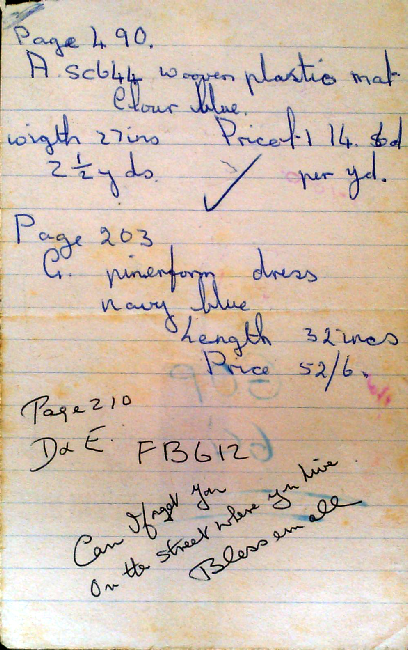 Page 490.
A. SC644 wooven plastic mat
Clour blue.
wigth 27ins Price £1 14. 6d
2½ yds. per yd.
Page 203
G. pinerform dress
navy blue
Length 32incs
Price 52/6.
Page 210
D & E. FB612
Can I forget you
On the street where you live
Bless em all